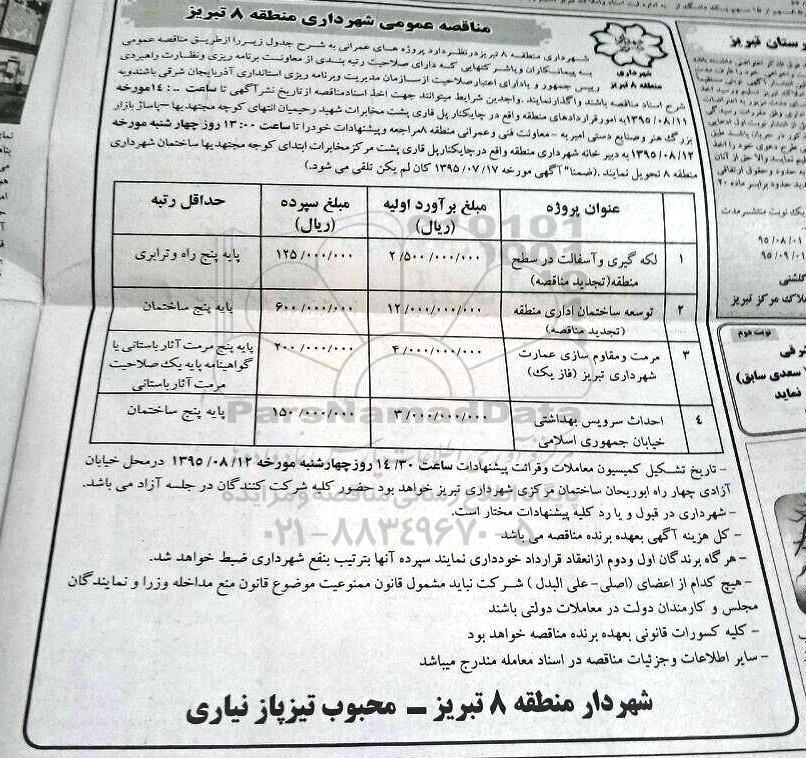 مناقصه عمومی شهرداری منطقه ۸ تبریز
شهرداری
منطقه ۸ تبریز
شهرداری منطقه ۸ تبریز در نظر دارد پروژه های عمرانی به شرح جدول زیر را از طریق مناقصه عمومی
به پیمانکاران و یا شرکتهایی که دارای صلاحیت رتبه بندی از معاونت برنامه ریزی و نظارت راهبردی
رییس جمهور و یا دارای اعتبار صلاحیت از سازمان مدیریت و برنامه ریزی استانداری آذربایجان شرقی باشند و به
شرح اسناد مناقصه باشند واگذار نمایند. واجدین شرایط میتوانند جهت اخذ اسناد مناقصه از تاریخ نشر آگهی تا ساعت ۱۴:۰۰ مورخه
۱۳۹۵/۰۸/۱۱ به امور قراردادهای منطقه واقع در چایکنار پل قاری پشت مخابرات شهید رحیمیان انتهای کوچه مجتهدیها - پاساژ بازار
بزرگ هنر و صنایع دستی امیر به - معاونت فنی و عمرانی منطقه ۸ مراجعه و پیشنهادات خود را تا ساعت ۱۳:۰۰ روز چهارشنبه مورخه
۱۳۹۵/۰۸/۱۲ به دبیر خانه شهرداری منطقه واقع در چایکنار پل قاری پشت مرکز مخابرات ابتدای کوچه مجتهدیها ساختمان شهرداری
منطقه ۸ تحویل نمایند. (ضمنا" آگهی مورخه ۱۳۹۵/۰۷/۱۷ کان لم یکن تلقی می شود.)
عنوان پروژه مبلغ برآورد اولیه (ریال) مبلغ سپرده (ریال) حداقل رتبه
۱ لکه گیری و آسفالت در سطح منطقه (تجدید مناقصه) ۲/۵۰۰/۰۰۰/۰۰۰ ۱۲۵/۰۰۰/۰۰۰ پایه پنج راه و ترابری
۲ توسعه ساختمان اداری منطقه (تجدید مناقصه) ۱۲/۰۰۰/۰۰۰/۰۰۰ ۶۰۰/۰۰۰/۰۰۰ پایه پنج ساختمان
۳ مرمت و مقاوم سازی عمارت شهرداری تبریز (فاز یک) ۴/۰۰۰/۰۰۰/۰۰۰ ۲۰۰/۰۰۰/۰۰۰ پایه پنج مرمت آثار باستانی یا گواهینامه پایه یک صلاحیت مرمت آثار باستانی
۴ احداث سرویس بهداشتی خیابان جمهوری اسلامی ۳/۰۰۰/۰۰۰/۰۰۰ ۱۵۰/۰۰۰/۰۰۰ پایه پنج ساختمان
ParsNamadData
پایگاه اطلاع رسانی مناقصه و مزایده
۰۲۱-۸۸۳۴۹۶۷۰-۵
- تاریخ تشکیل کمیسیون معاملات و قرائت پیشنهادات ساعت ۱۴/۳۰ روز چهارشنبه مورخه ۱۳۹۵/۰۸/۱۲ در محل خیابان
آزادی چهار راه ابوریحان ساختمان مرکزی شهرداری تبریز خواهد بود حضور کلیه شرکت کنندگان در جلسه آزاد می باشد.
- شهرداری در قبول و یا رد کلیه پیشنهادات مختار است.
- کل هزینه آگهی بعهده برنده مناقصه می باشد
- هر گاه برندگان اول و دوم از انعقاد قرارداد خودداری نمایند سپرده آنها بترتیب بنفع شهرداری ضبط خواهد شد.
- هیچ کدام از اعضای (اصلی - علی البدل) شرکت نباید مشمول قانون ممنوعیت موضوع قانون منع مداخله وزرا و نمایندگان
مجلس و کارمندان دولت در معاملات دولتی باشند
- کلیه کسورات قانونی بعهده برنده مناقصه خواهد بود
- سایر اطلاعات و جزئیات مناقصه در اسناد معامله مندرج میباشد
شهردار منطقه ۸ تبریز - محبوب تیزپاز نیاری
رستان تبریز
۹۵/۰۸/۰۱
۹۵/۰۹/۰۱
گلشنی
ملاک مرکز تبریز
نوبت دوم
سعدی سابق)
نماید